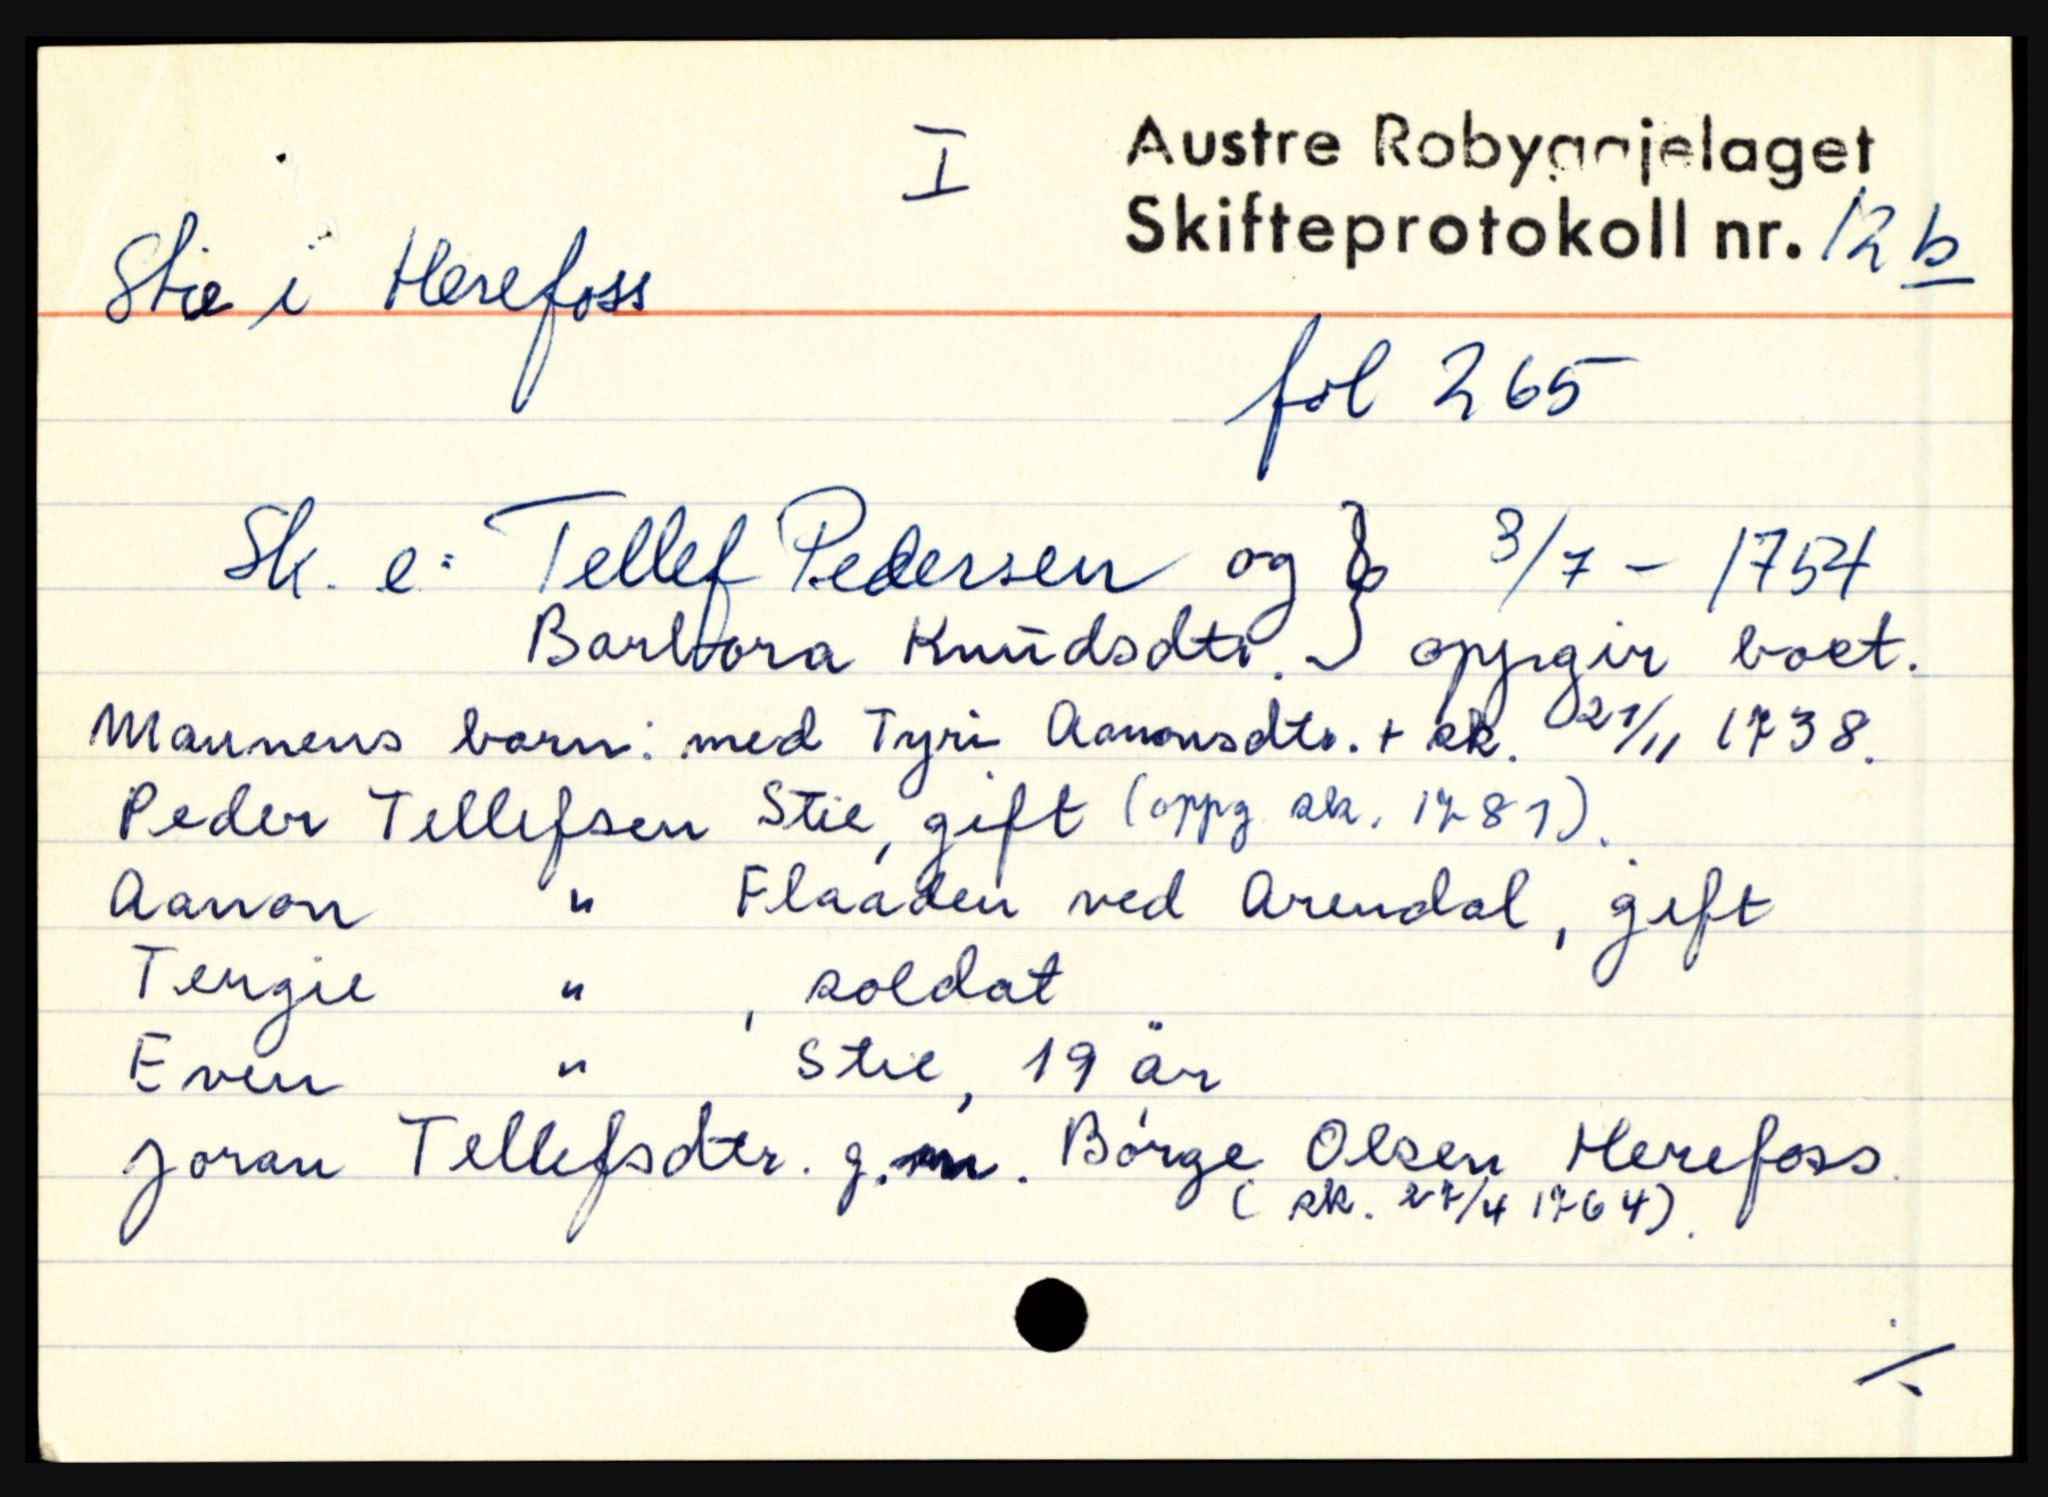 I
Austre Robyggjelaget
Skifteprotokoll nr. 12 b
Stie i Herefoss
fol 265
Sk. e: Tellef Pedersen og } 3/7 - 1754
Barbora Knudsdtr. } oppgir boet.
Mannens barn: med Tyri Aanonsdtr. + sk. 21/11 1738.
Peder Tellefsen Stie, gift (oppg sk. 1781).
Aanon " Flaaden ved Arendal, gift
Tergie " , soldat
Even " Stie, 19 år
Joran Tellefsdtr. g.m. Börge Olsen Herefoss
(sk. 27/4 1764).
./.